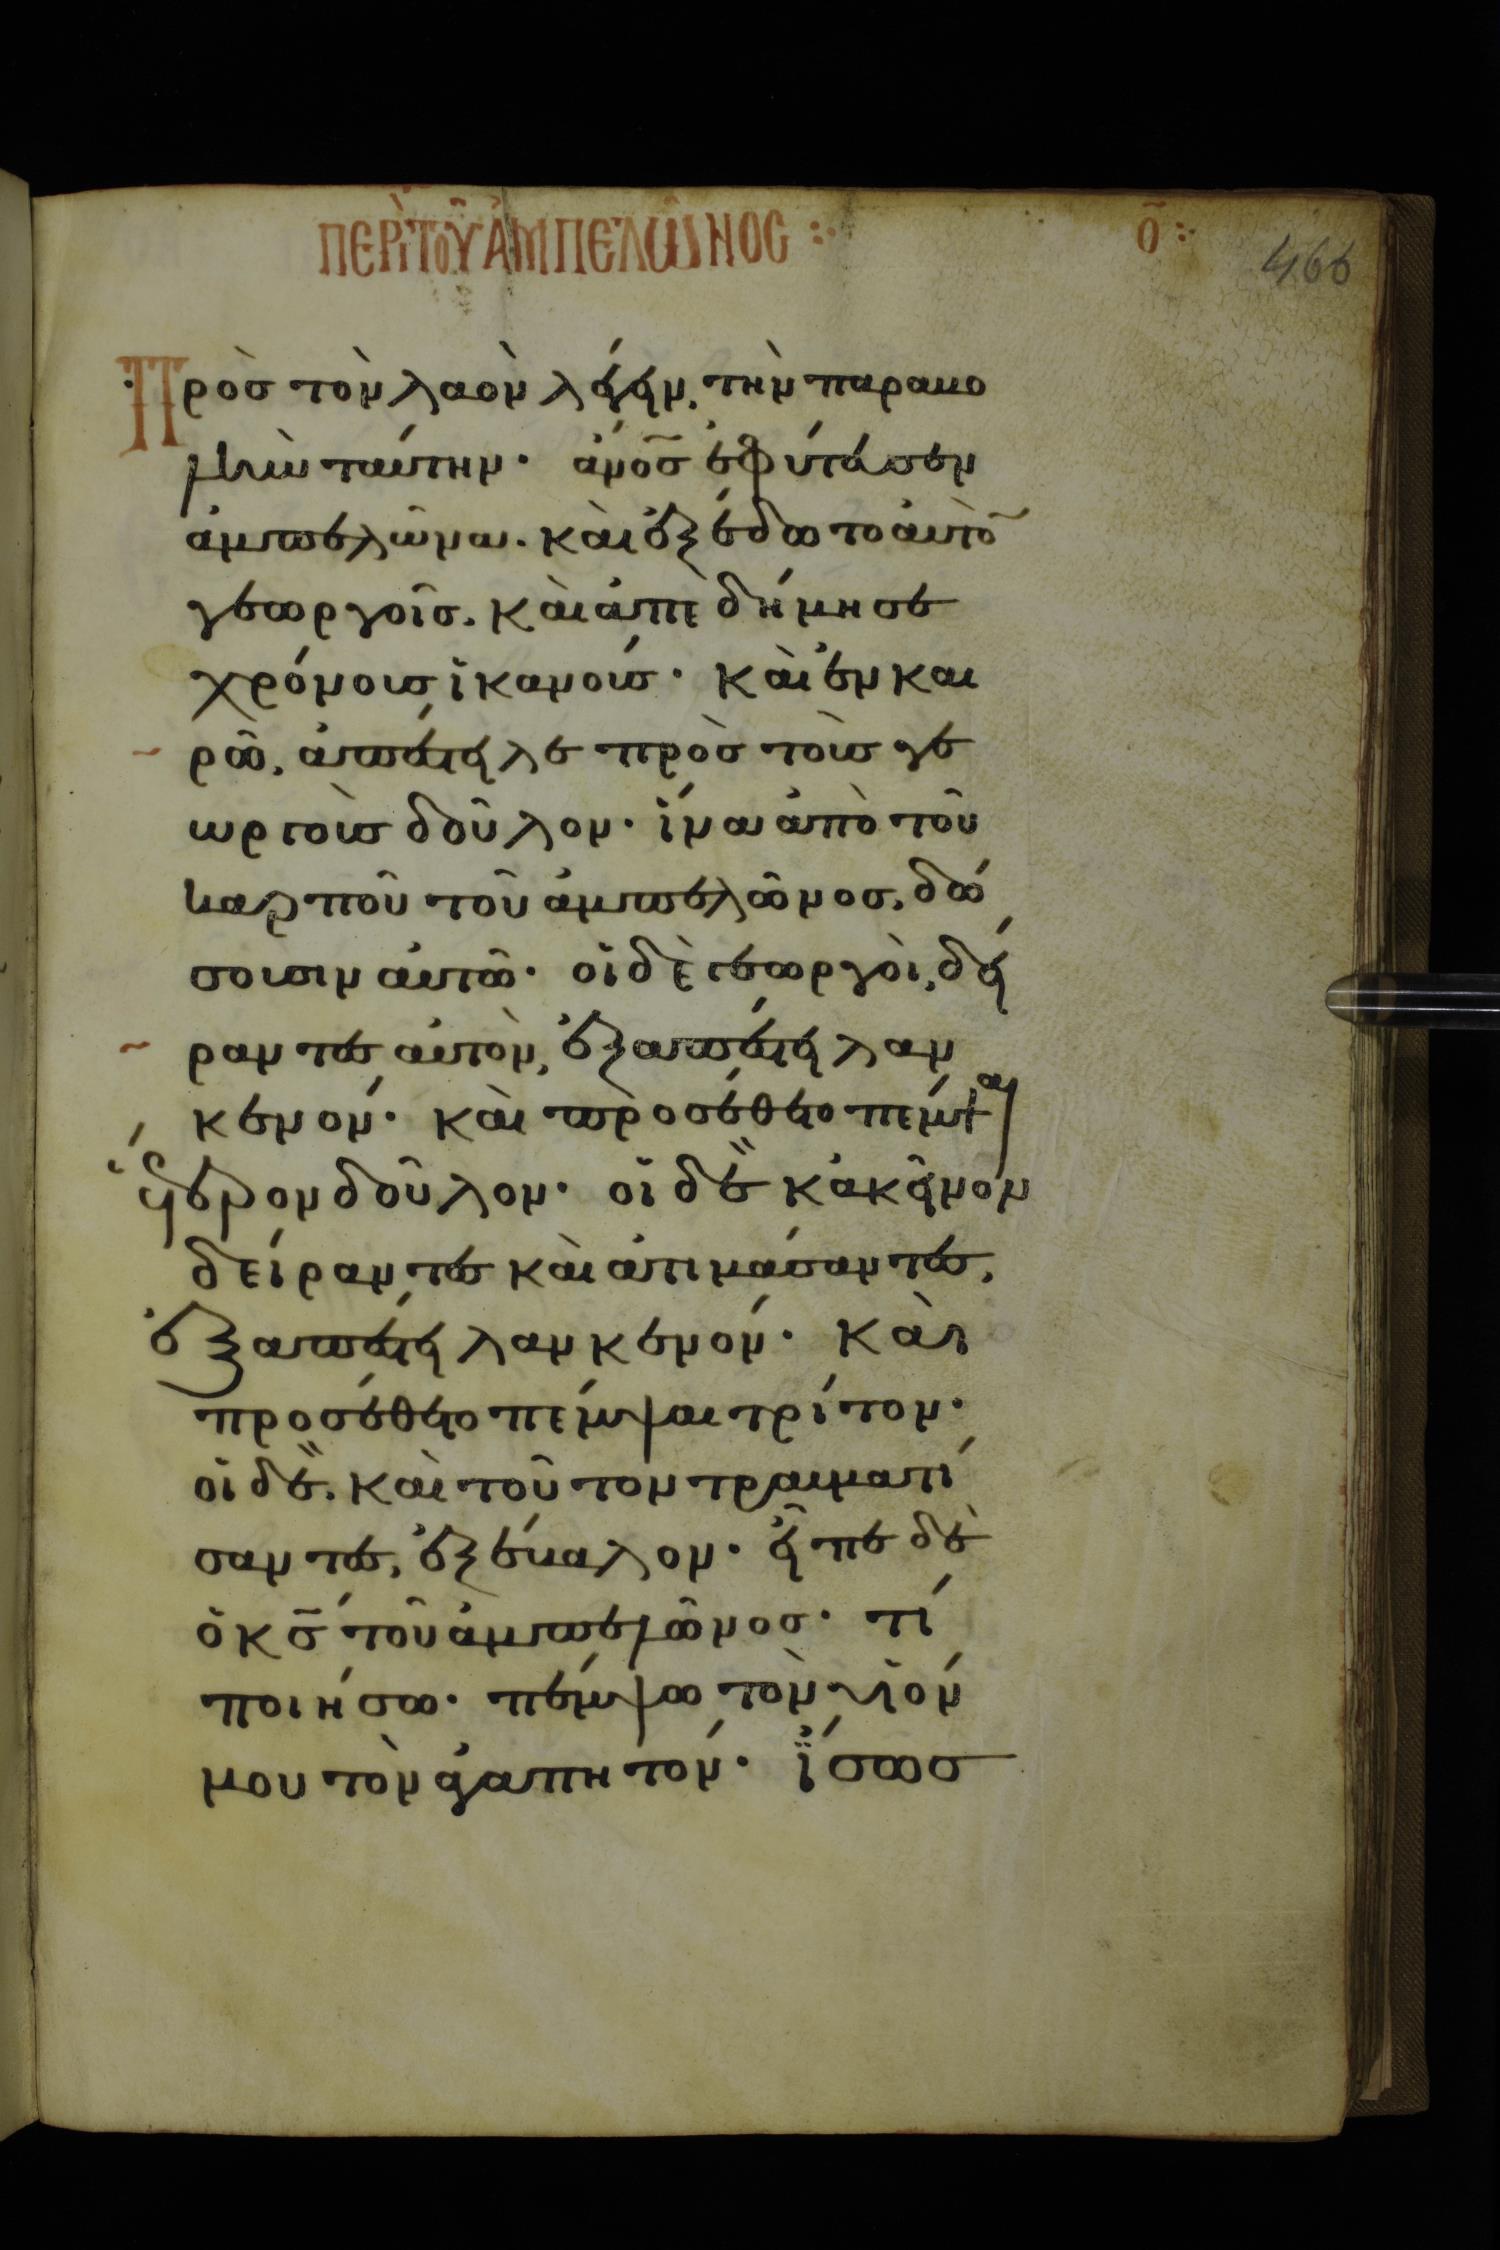 ΠΕΡῚ ΤΟΥ͂ ἈΜΠΕΛΩ͂ΝΟC
ο̅
466
Πρὸσ τὸν λαὸν λέγειν, τὴν παραβο
λὴν ταύτην· ἄνο̅σ ἐφύτευσεν
ἀμπελῶνα. καὶ ἐξέδωτο αὐτὸ̅
γεωργοῖσ. καὶ ἀπεδήμησε
χρόνουσ ἱκανούσ· καὶ ἐν και
ρῶ, ἀπέστειλε πρὸσ τοὺσ γε
ωργοὺσ δοῦλον· ἵνα ἀπὸ τοῦ
καρποῦ τοῦ ἀμπελῶνοσ. δώ
σουσιν αὐτῶ· οἱ δὲ γεωργοὶ, δεί
ραντεσ αὐτὸν, ἐξαπέστειλαν
κενόν· καὶ προσέθετο πέμψαι
ἕτερον δοῦλον· οἱ δὲ κἀκεῖνον
δείραντεσ καὶ ἀτιμάσαντεσ,
ἐξαπέστειλαν κενόν· καὶ
προσέθετο πέμψαι τρίτον·
οἱ δὲ. καὶ τοῦτον τραυματί
σαντεσ, ἐξέβαλον· εἶπε δὲ
ὁ κ̅σ̅ τοῦ ἀμπελῶνοσ· τί
ποιήσω· πέμψω τὸν υἱόν
μου τὸν ἀγαπητόν· ἴσωσ